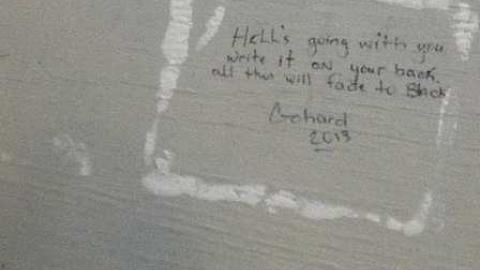 Hell's going with you
write it on your back.
all this will fade to Black
Gohard
2013